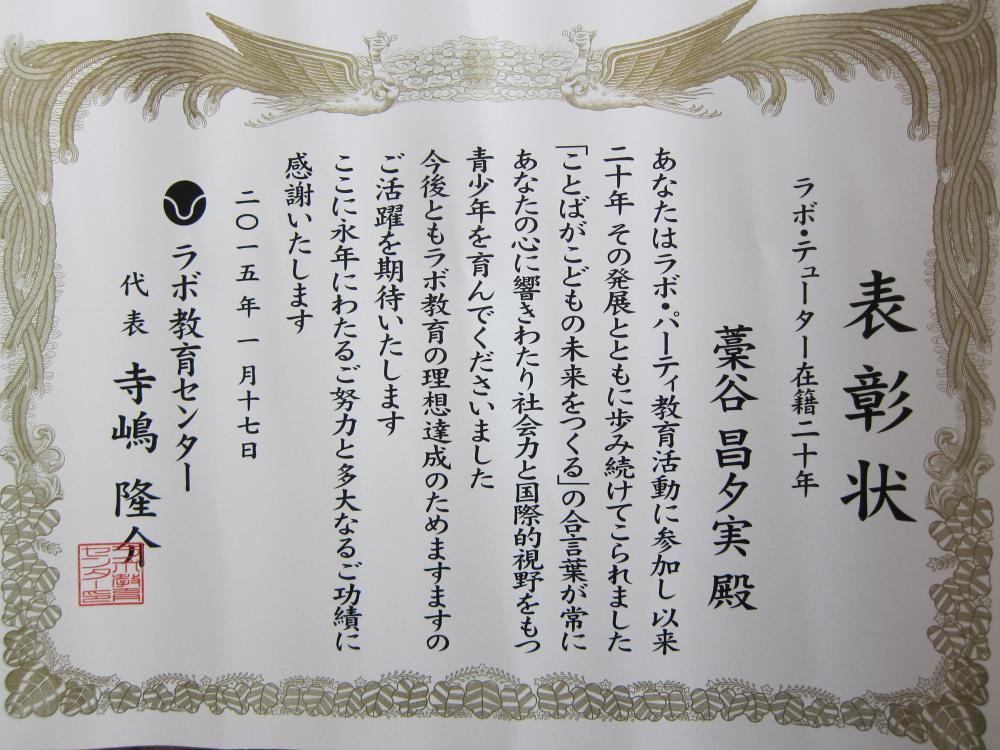 表彰状
ラボ・テューター在籍二十年
藁谷 昌夕実 殿
あなたはラボ・パーティ教育活動に参加し 以来
二十年 その発展とともに歩み続けてこられました
「ことばがこどもの未来をつくる」の合言葉が常に
あなたの心に響きわたり社会力と国際的視野をもつ
青少年を育んでくださいました
今後ともラボ教育の理想達成のためますますの
ご活躍を期待いたします
ここに永年にわたるご努力と多大なるご功績に
感謝いたします
二〇一五年一月十七日
ラボ教育センター
代表 寺嶋 隆介